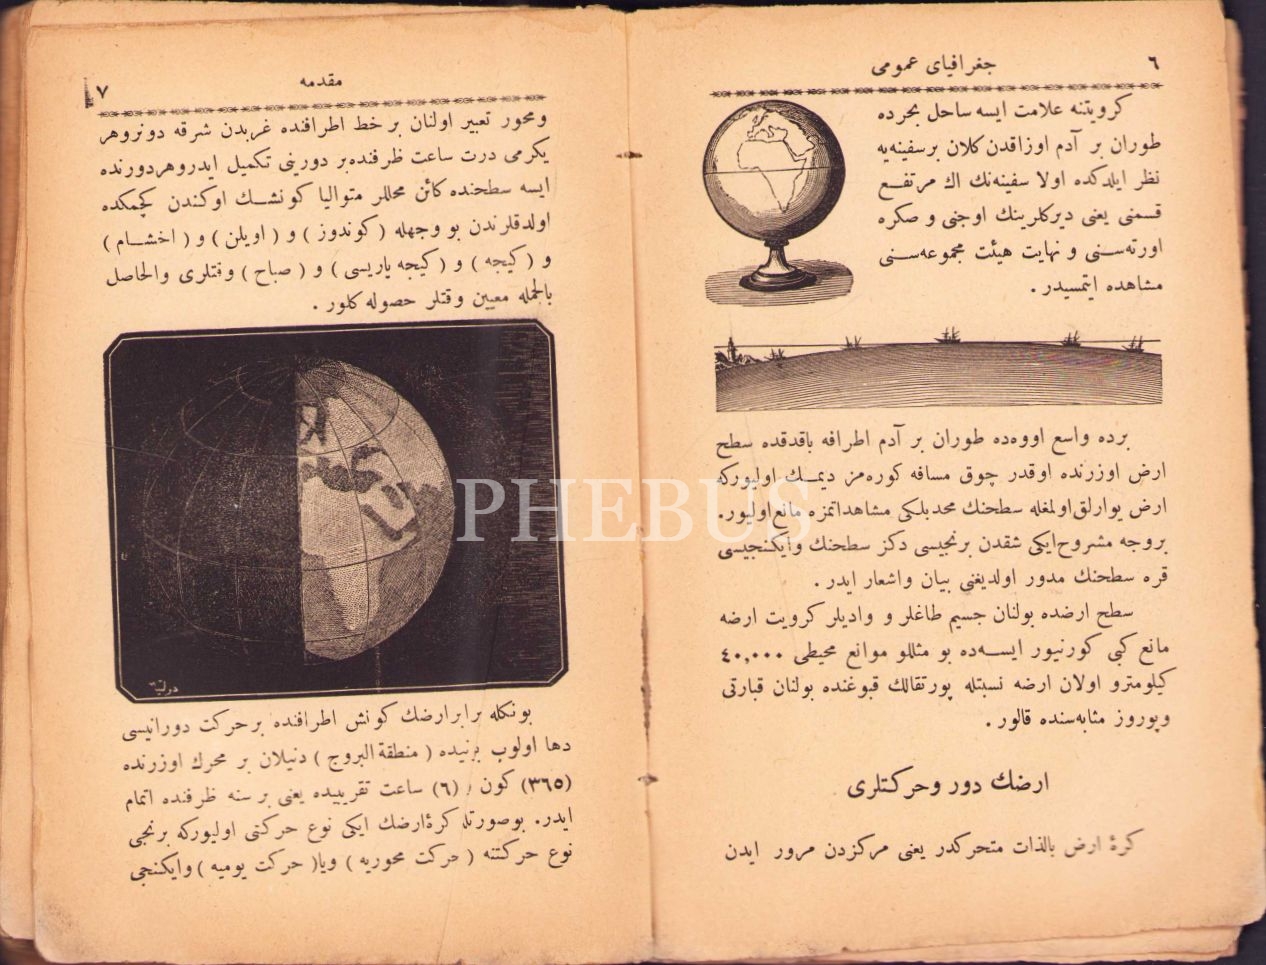 ٦
جغرافیای عمومی
كرویتنه علامت ایسه ساحل بحرده
طوران بر آدم اوزاقدن كلان برسفینه‌یه
نظر ایلدكده اولا سفینه‌نك اك مرتفـع
قسمنی یعنی دیركلرینك اوجنی و صكره
اورته‌سـنی و نهایت هیئت مجموعه‌سـنی
مشاهده ایتمسیدر .
برده واسع اووه‌ده طوران بر آدم اطرافه باقدقده سطح
ارض اوزرنده اوقدر چوق مسافه كوره‌مز دیمـك اولیوركه
ارض یوارلق اولمغله سطحنك محدبلكی مشاهداتمزه مانع اولیور.
بروجه مشروح ایكی شقدن برنجیسی دكز سطحنك وایكنجیسی
قره سطحنك مدور اولدیغی بیان واشعار ایدر .
سطح ارضده بولنان جسیم طاغلر و وادیلر كرویت ارضه
مانع كبی كورنیور ایسـه‌ده بو مثللو موانع محیطی ٤٠,٠٠٠
كیلومترو اولان ارضه نسبتله پورتقالك قبوغنده بولنان قبارتی
وپوروز مثابه‌سنده قالور .
ارضك دور وحركتلری
كرۀ ارض بالذات متحركدر یعنی مركزدن مرور ایدن
٧
مقدمه
ومحور تعبیر اولنان برخط اطرافنده غربدن شرقه دونروهر
یكرمی درت ساعت ظرفنده بر دورینی تكمیل ایدروهردورنده
ایسه سطحنده كائن محللر متوالیا كونشـك اوكندن كچمكده
اولدقلرندن بو وجهله ( كوندوز ) و ( اویلن ) و ( اخشـام )
و ( كیجه ) و ( كیجه یاریسی ) و ( صباح ) وقتلری والحاصل
بالجمله معیین وقتلر حصوله كلور .
بونكله برابرارضك كونش اطرافنده برحركت دورانیسی
دها اولوب بونیده ( منطقة البروج ) دنیلان بر محرك اوزرنده
(٣٦٥) كون و (٦) ساعت تقریبیده یعنی برسنه ظرفنده اتمام
ایدر. بوصورتله كرۀ ارضك ایكی نوع حركتی اولیوركه برنجی
نوع حركتنه ( حركت محوریه ) ویا( حركت یومیه ) وایكنجی
PHEBUS